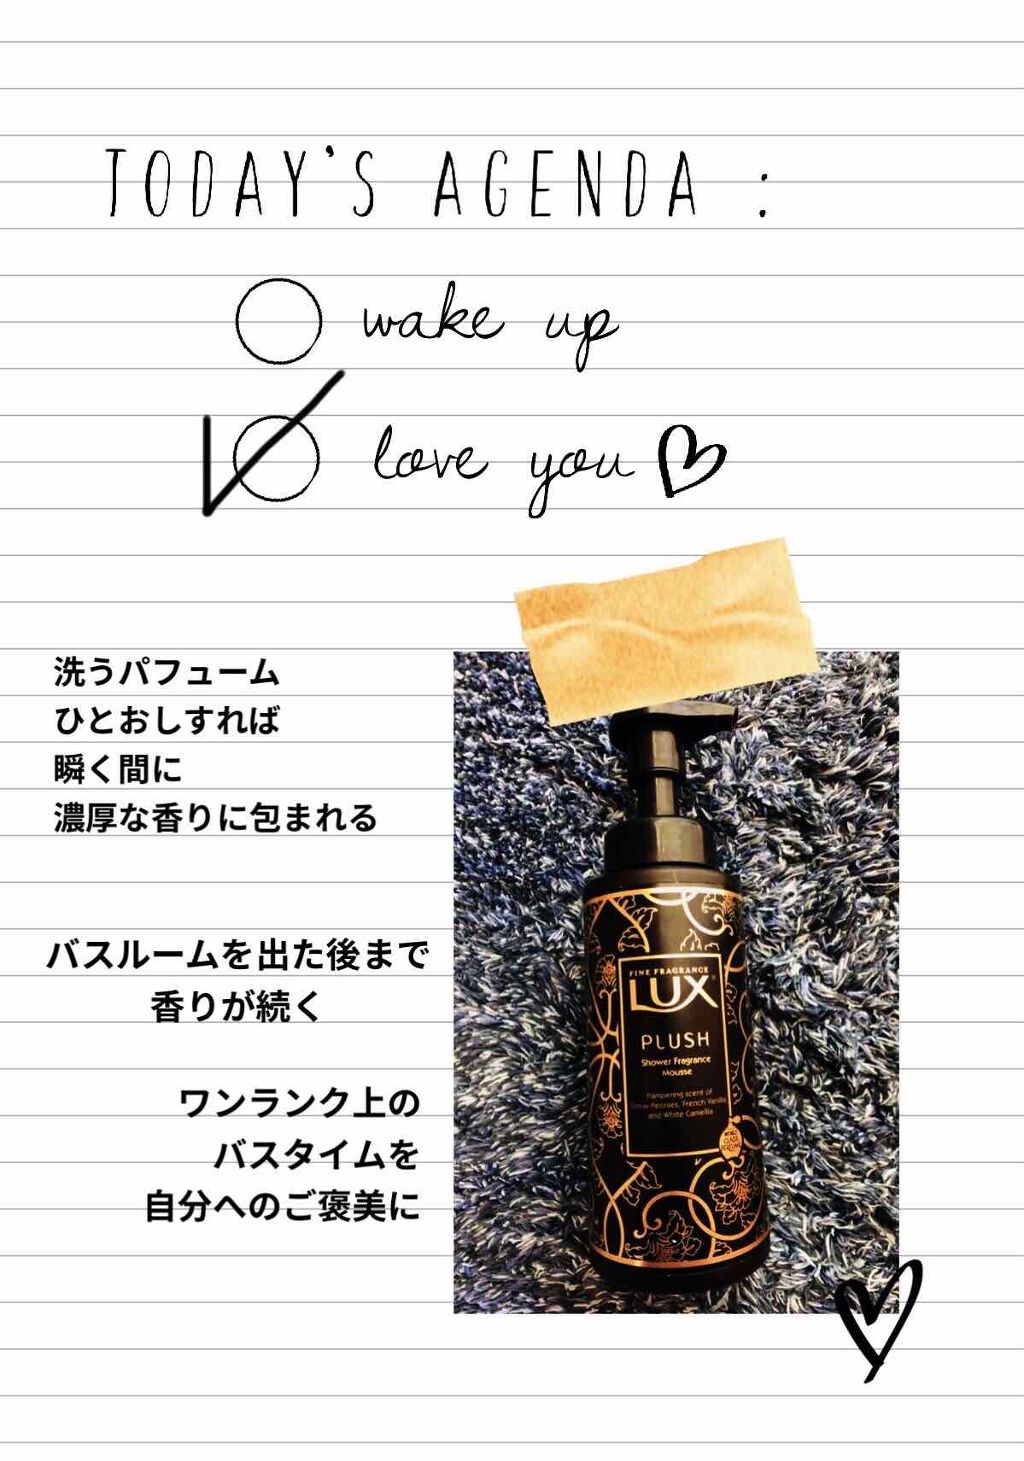 TODAY'S AGENDA :
wake up
love you
洗うパフューム
ひとおしすれば
瞬く間に
濃厚な香りに包まれる
バスルームを出た後まで
香りが続く
ワンランク上の
バスタイムを
自分へのご褒美に
FINE FRAGRANCE
LUX
PLUSH
Shower Fragrance
Mousse
Pampering scent of
Snow Peonies, French Vanilla
and White Camellia